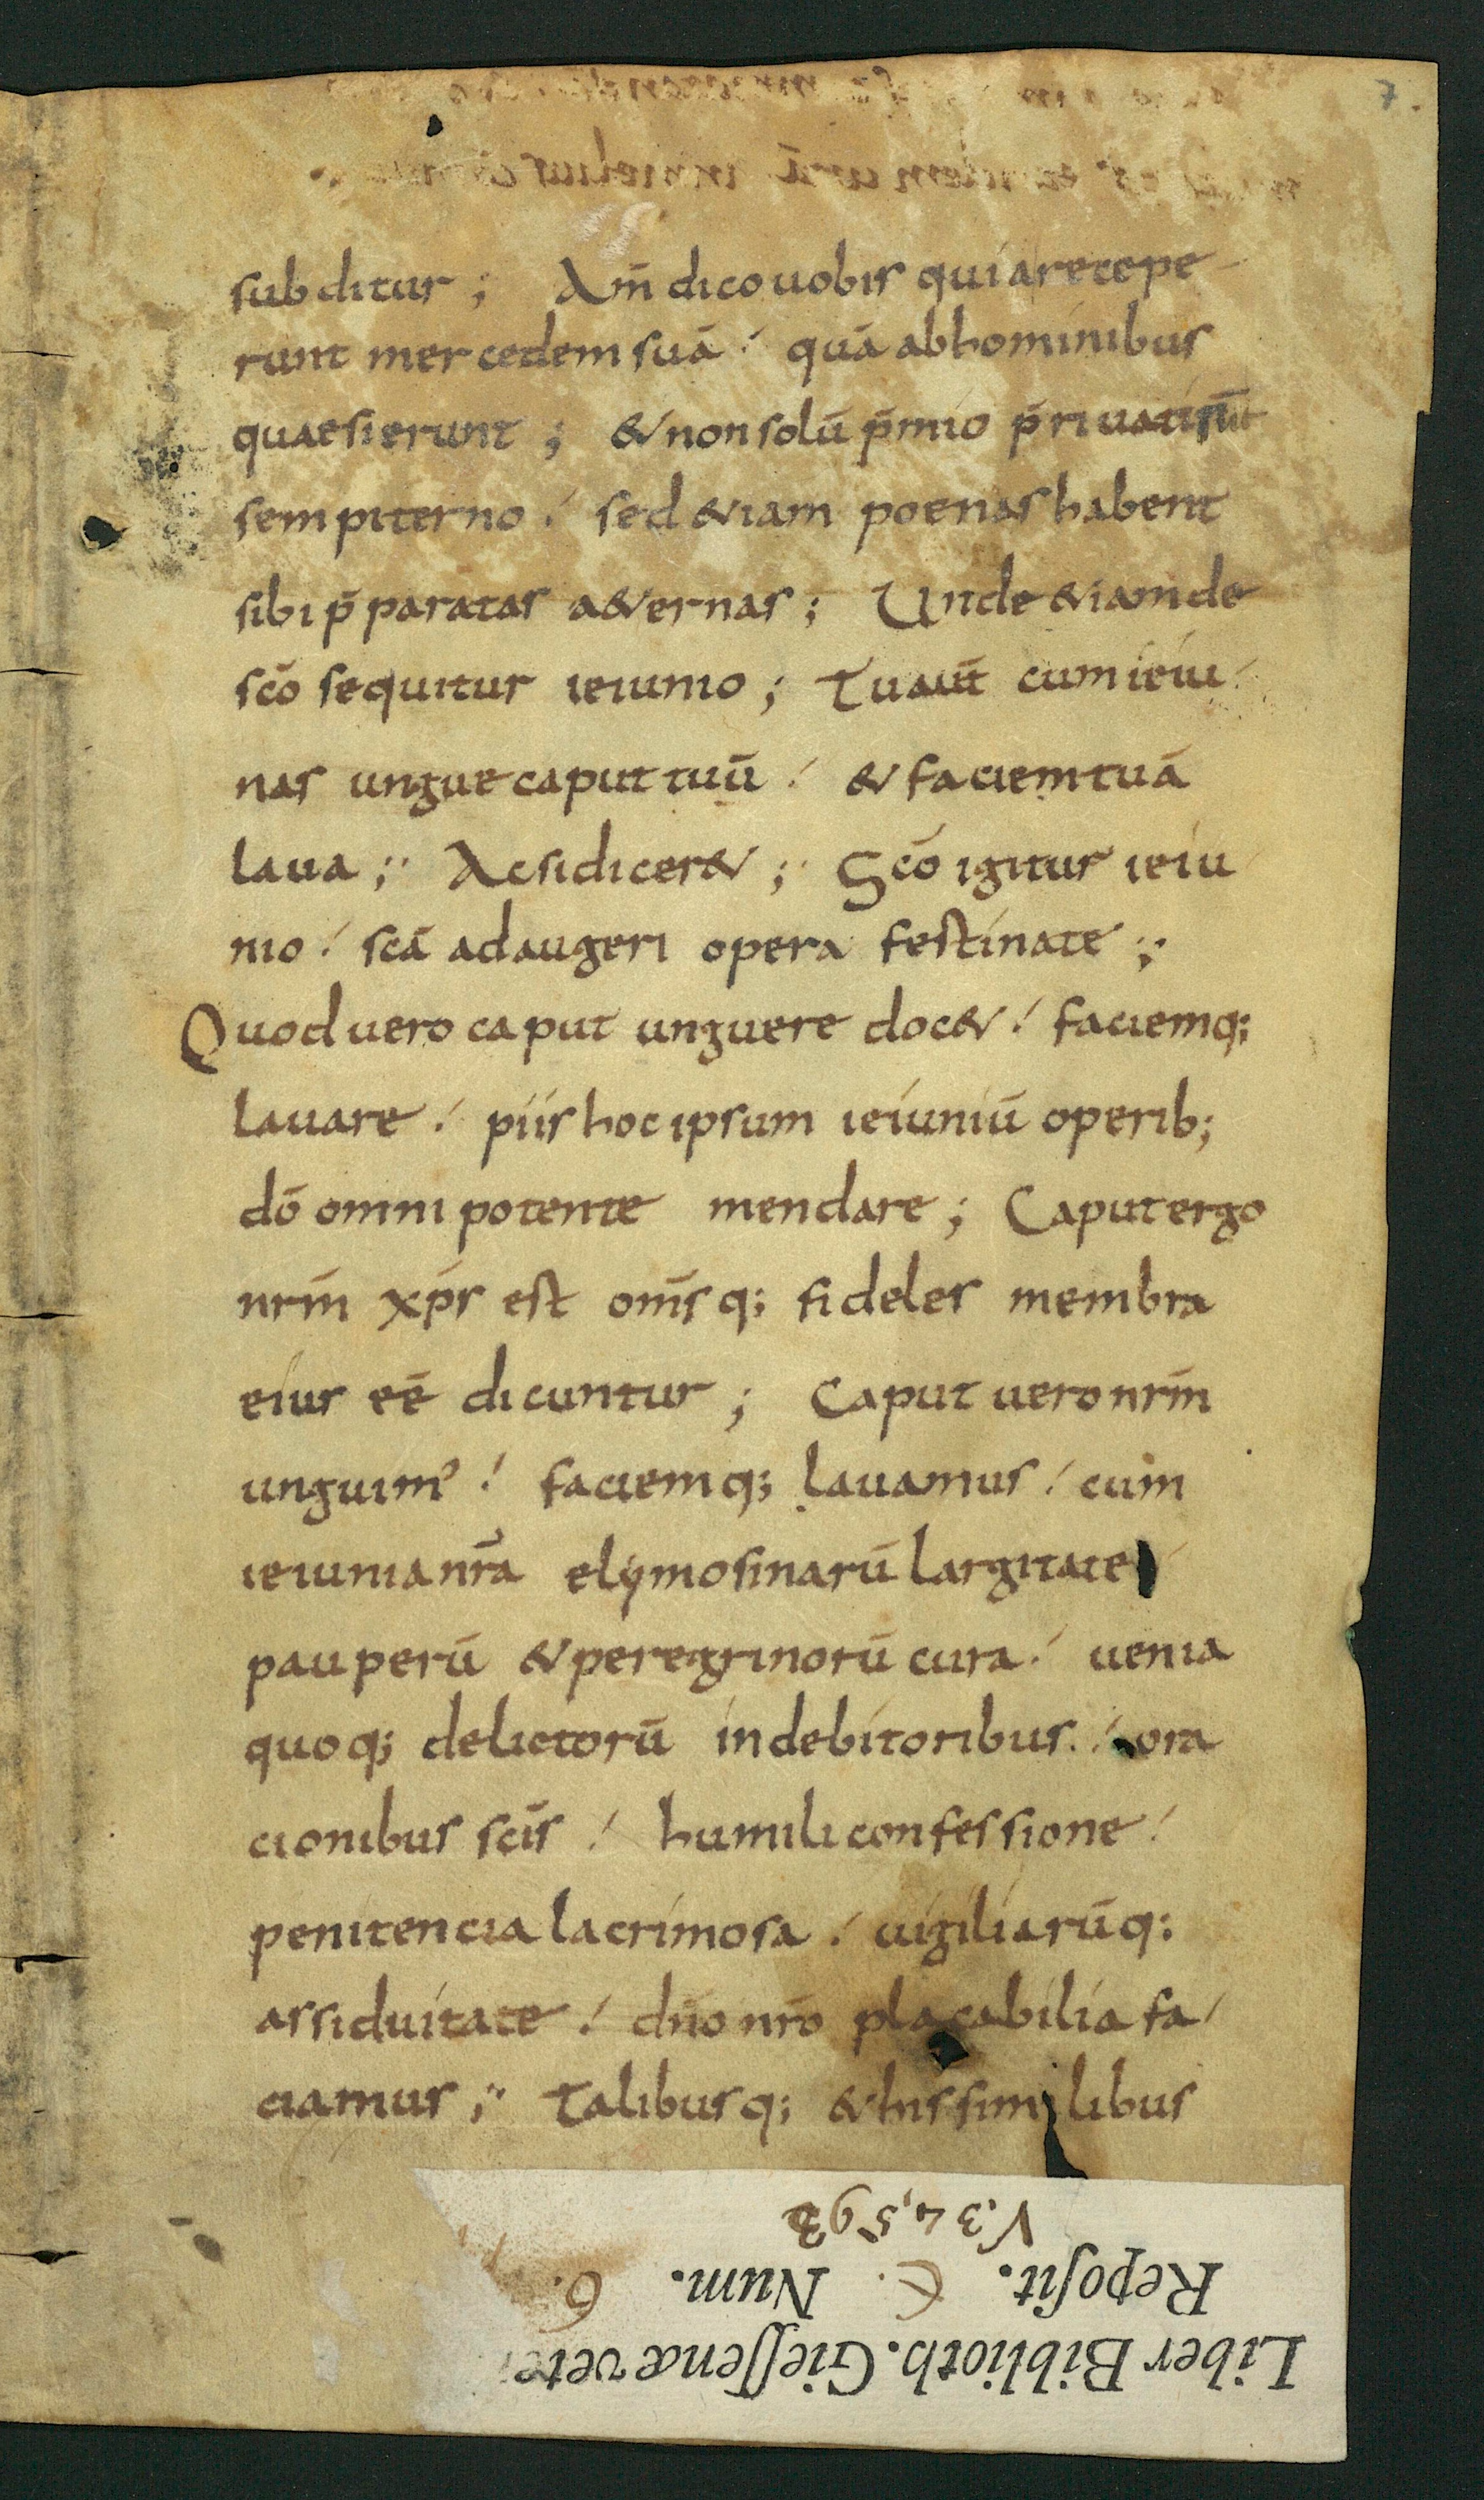 7.
subditur; Am̄ dico uobis quia retepe
runt mercedem suā quā ab hominibus
quaesierunt; & non solū p̄mio p̄riuati sūt
sempiterno sed &iam poenas habent
sibi p̄paratas a&ernas; Unde &iam de
scō sequitur ieiunio; Tu aūt cum ieiu
nas ungue caput tuū & faciem tuā
laua; Ac si dicer&; Scō igitur ieiu
nio scā adaugeri opera festinate;
Quod uero caput unguere doc& faciemq;
lauare piis hoc ipsum ieiuniū operib;
dō omnipotente mendare; Caput ergo
nrm̄ xp̄s est om̄sq; fideles membra
eius eē dicuntur; Caput uero nrm̄
unguim' faciemq; lauamus cum
ieiunia nr̄a elymosinarū largitate
pauperū & peregrinorū cura uenia
quoq; delictorū in debitoribus ora
cionibus scīs humili confessione
penitencia lacrimosa uigiliarūq;
assiduitate dn̄o nr̄o placabilia fa
ciamus; Talibusq; & his similibus
Liber Biblioth. Giessenæ vete
Reposit. C. Num. 6.